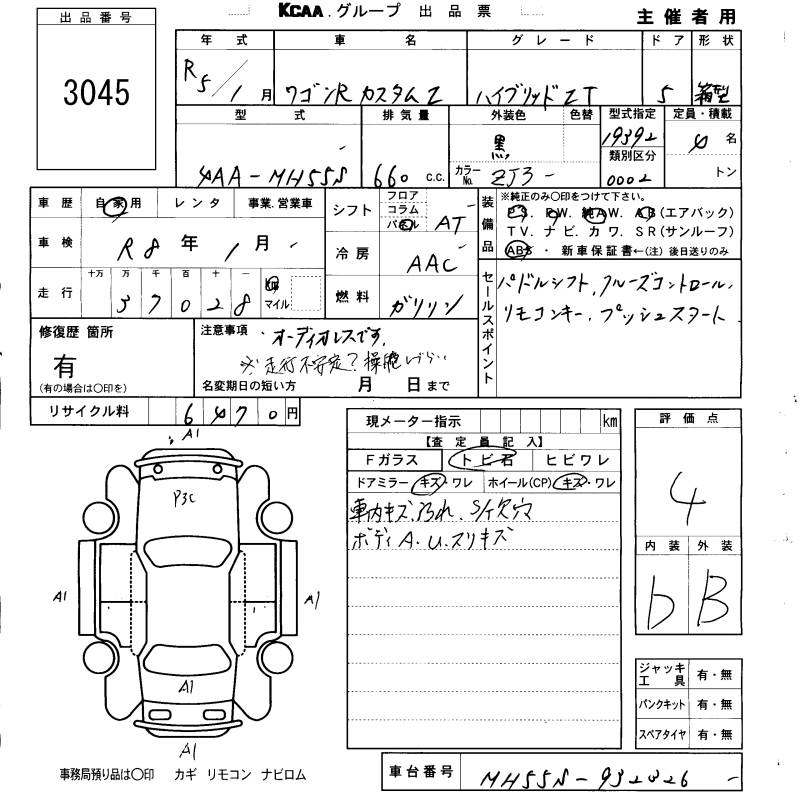 KCAA.グループ 出品票
主催者用
出品番号
3045
年式 車名 グレード ドア 形状
R5/1月 ワゴンR カスタムZ ハイブリッドZT 5 箱型
型式 排気量 外装色 色替 型式指定 定員・積載
4AA-MH55S 660 c.c. 黒 19392 4名
カラーNo. ZJ3- 類別区分 0002 トン
車歴 自家用 レンタ 事業.営業車
車検 R8年1月
走行 十万 万 千 百 十 一
37028 km マイル
シフト フロア コラム パネル AT
冷房 AAC
燃料 ガソリン
装備品 ※純正のみ〇印をつけて下さい。
P.S. P.W. 純A.W. A.B(エアバック)
T.V. ナビ. カワ. S.R(サンルーフ)
ABS ・ 新車保証書←(注) 後日送りのみ
セールスポイント
パドルシフト, クルーズコントロール,
リモコンキー, プッシュスタート
修復歴 箇所
有
(有の場合は〇印を)
注意事項 オーディオレスです,
※走行不安定?
名変期日の短い方 月 日まで
リサイクル料 6470円
現メーター指示 km
【査定員記入】
Fガラス トビ石 ヒビワレ
ドアミラー キズ・ワレ ホイール(CP) キズ・ワレ
車内キズ汚れ. S/イ欠穴
ボディA.U.スリキズ
評価点
4
内装 外装
b B
ジャッキ工具 有・無
パンクキット 有・無
スペアタイヤ 有・無
A1
P3C
A1
A1
A1
A1
事務局預り品は〇印 カギ リモコン ナビロム
車台番号 MH55S-932026